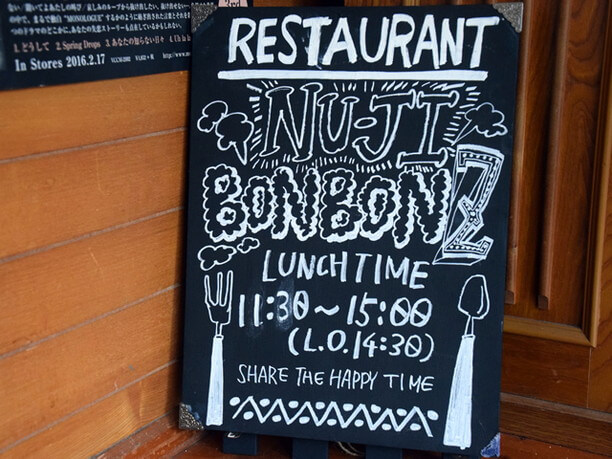 1.どうして 2.Spring Drops 3.あなたの知らない日々
In Stores 2016.2.17
RESTAURANT
NU-JI
BONBONZ
LUNCHTIME
11:30~15:00
(L.O.14:30)
SHARE THE HAPPY TIME